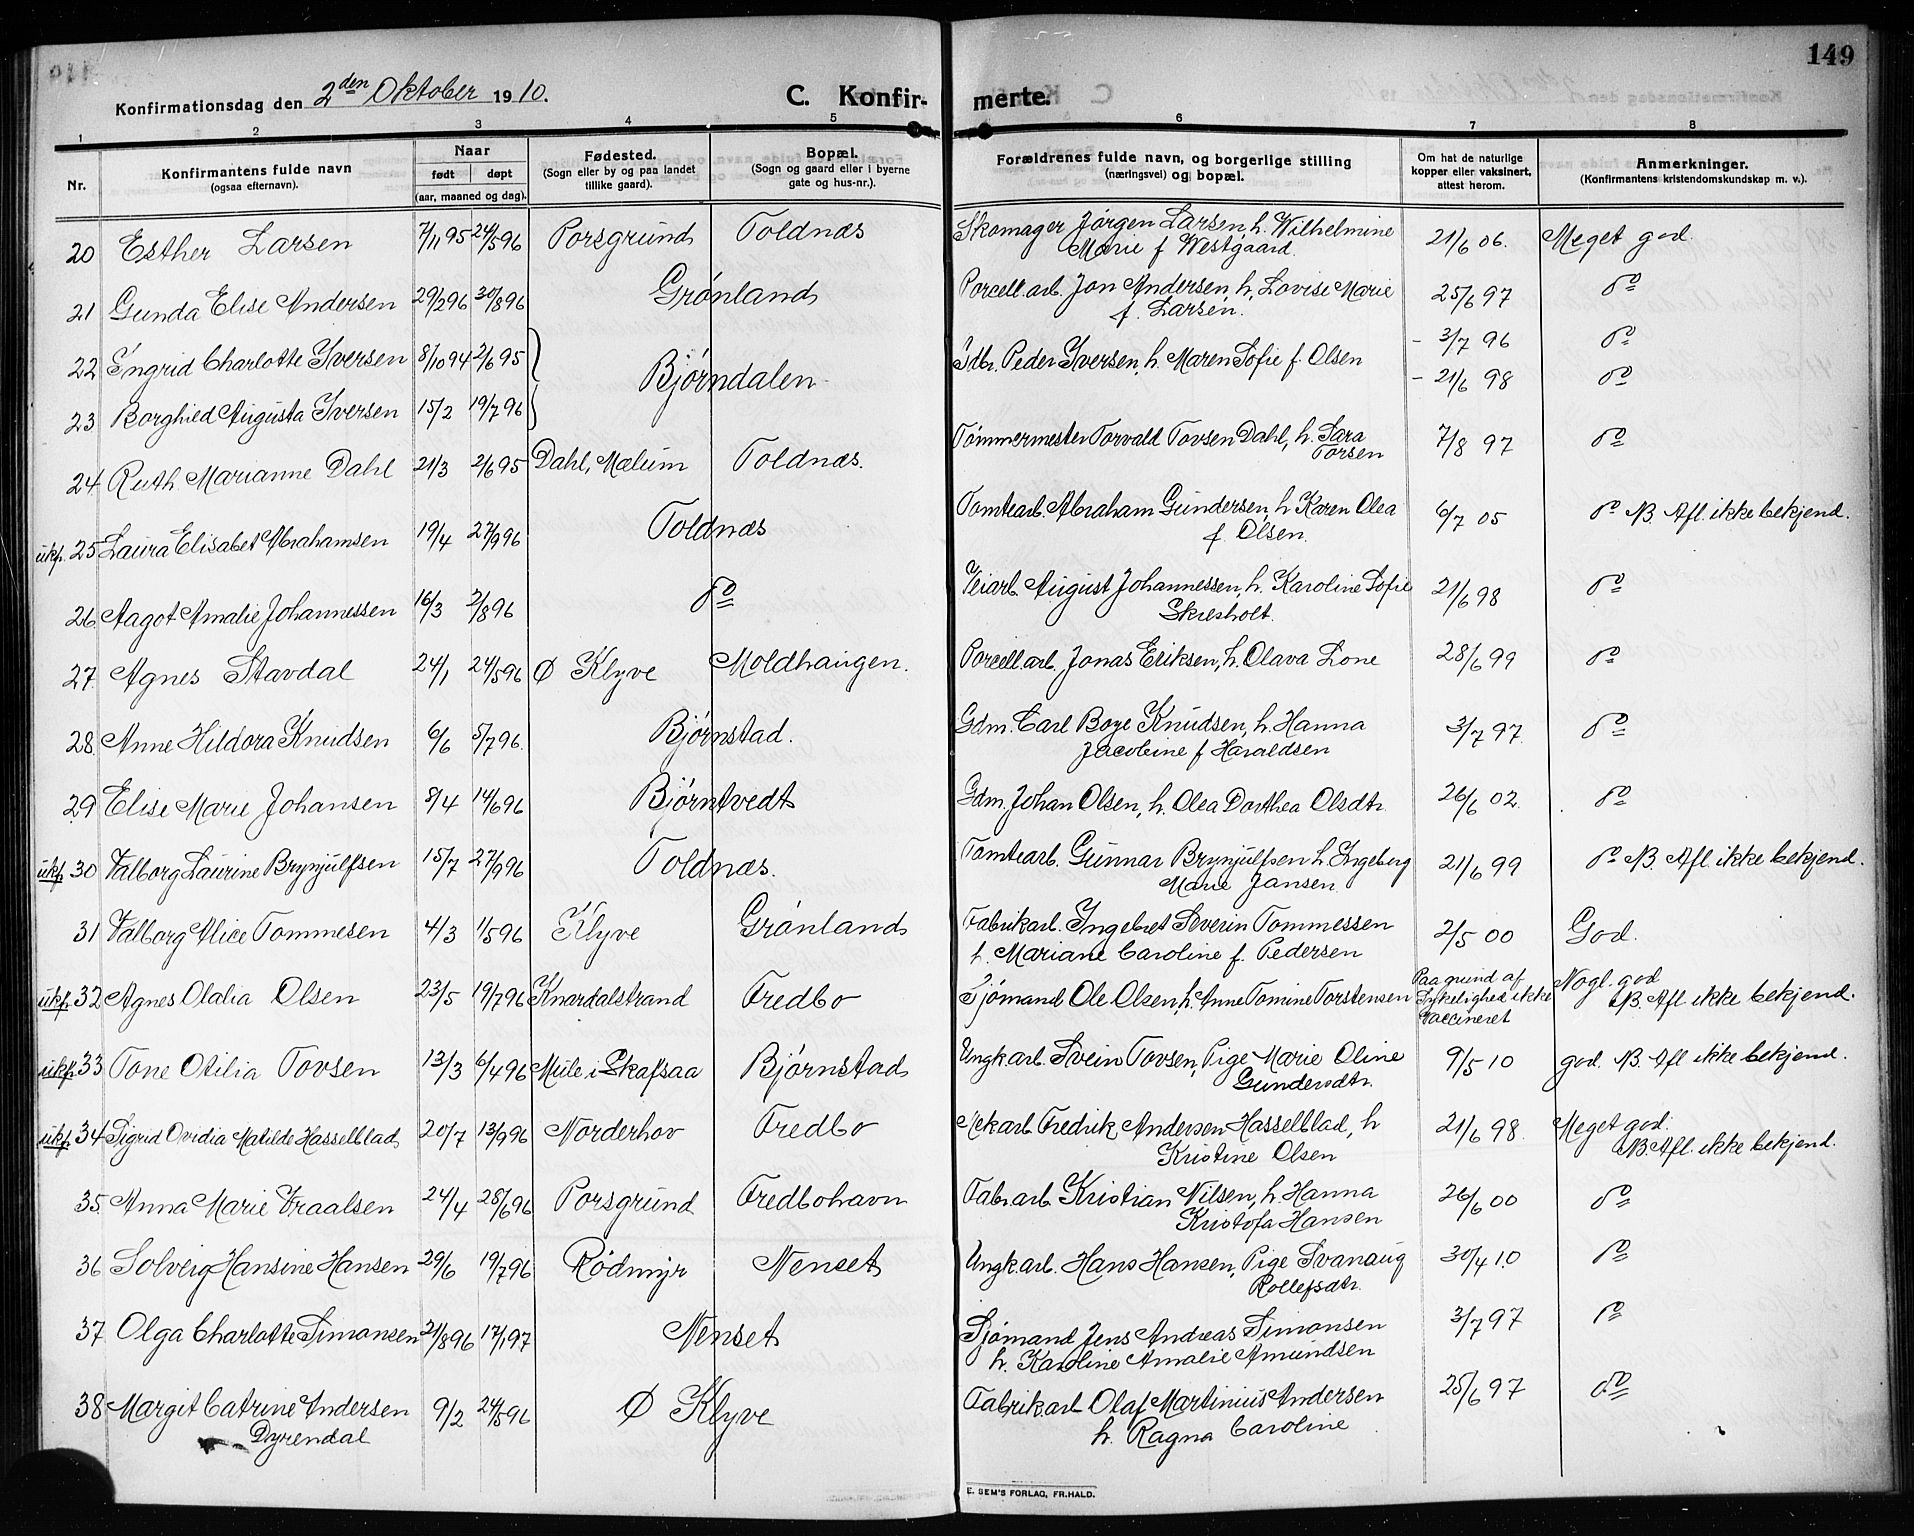 149
Konfirmationsdag den 2den Oktober 1910.
C. Konfirmerte.
1 2 3 4 5 6 7 8
Nr.
Konfirmantens fulde navn
(ogsaa efternavn).
Naar
født døpt
(aar, maaned og dag).
Fødested.
(Sogn eller by og paa landet
tillike gaard).
Bopæl.
(Sogn og gaard eller i byerne
gate og hus-nr.).
Forældrenes fulde navn, og borgerlige stilling
(næringsvei) og bopæl.
Om hat de naturlige
kopper eller vaksinert,
attest herom.
Anmerkninger.
(Konfirmantens kristendomskundskap m. v.).
20 Esther Larsen 7/11 95 24/5 96 Porsgrund Toldnæs Skomager Jørgen Larsen, h. Wilhelmine
Marie f Westgaard. 21/6 06. Meget god.
21 Gunda Elise Andersen 29/2 96 30/8 96 Grønland Porcell.arb. Jon Andersen, h. Lovise Marie
f. Larsen. 25/6 97 do
22 Ingrid Charlotte Iversen 8/10 94 2/6 95 Bjørndalen Gdbr. Peder Iversen, h. Maren Sofie f. Olsen - 3/7 96 do
23 Borghied Augusta Iversen 15/2 19/7 96 - 21/6 98 do
24 Ruth Marianne Dahl 21/3 2/6 95 Dahl, Mælum Toldnæs. Tømmermester Torvald Tovsen Dahl, h. Sara
Torsen 7/8 97 do
ukf. 25 Laura Elisabet Abrahamsen 19/4 27/9 96 Toldnæs Tomtearb. Abraham Gundersen, h Karen Olea
f. Olsen. 6/7 05 do NB. Afl. ikke bekjend.
26 Aagot Amalie Johannessen 16/3 2/8 96 do Veiarb. August Johannessen, h. Karoline Sofie
Skiesholt. 21/6 98 do
27 Agnes Stavdal 24/1 24/5 96 Ø Klyve Moldhaugen. Porcell arb. Jonas Eriksen, h. Olava Lone 28/6 99 do
28 Anne Hildora Knudsen 6/6 5/7 96. Bjørnstad. Gdm. Carl Boye Knudsen, h. Hanna
Jacobine f Haraldsen 3/7 97. do
29 Elise Marie Johansen 8/4 14/6 96 Bjørntvedt Gdm. Johan Olsen, h. Olea Dorthea Olsdtr 26/6 02. do
ukf. 30 Valborg Laurine Brynjulfsen 15/7 27/9 96 Toldnæs. Tomtearb. Gunnar Brynjulfsen h. Ingeborg
Marie Jansen. 21/6 99 do NB. Afl. ikke bekjend.
31 Valborg Alice Tommesen 4/3 1/5 96 Klyve Grønland Fabrikarb. Ingebret Severin Tommessen
h. Mariane Caroline f. Pedersen 2/5 00 God.
ukf. 32 Agnes Olalia Olsen 23/5 19/7 96 Knardalstrand Fredbo Sjømand Ole Olsen, h. Anne Tomine Torstensen Paa grund af
Sykelighed ikke
vaccineret Nogl. god
NB. Afl ikke bekjend.
ukf. 33 Tone Otilia Tovsen 13/3 6/4 96 Mule i Skafsaa Bjørnstad Ungkarl. Svein Tovsen, Pige Marie Oline
Gundersdtr. 9/5 10 god. NB. Afl ikke bekjend.
ukf. 34 Sigrid Ovidia Matilde Hasselblad 20/7 13/9 96 Norderhov Fredbo Fredrik Andersen Hasselblad, h
Kristine Olsen 21/6 98. Meget god.
NB. Afl. ikke bekjend.
35 Anna Marie Traalsen 24/4 28/6 96 Porsgrund Fredbohavn Fabr.arb. Kristian Nilsen, h. Hanna
Kristofa Hansen 26/6 00 do
36 Solveig Hansine Hansen 29/6 19/7 96 Rødmyr Nenset Ungk.arb. Hans Hansen, Pige Svanaug
Rollefsdtr. 30/4 10 do
37 Olga Charlotte Simonsen 21/8 96 17/1 97. Nenset Sjømand Jens Andreas Simonsen
h. Karoline Amalie Amundsen 3/7 97 do
38 Margit Catrine Andersen 9/2 24/5 96 Ø Klyve Fabrikarb Olaf Martinius Andersen
Dyrendal h. Ragna Caroline 25/6 97 do
E. SEM'S FORLAG, FR.HALD.